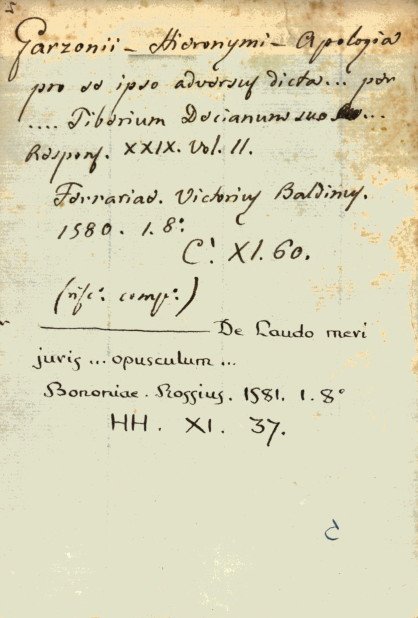 Garzonii - Hieronymi - Apologia
pro se ipso adversus dicta ... per
.... Tiberium Decianum suo ...
Respons. XXIX. Vol. II.
Ferrariae. Victorius Baldinus.
1580. 1. 8.°
C! XI. 60.
(rifc.° comp.°)
———— De Laudo meri
juris ... opusculum ...
Bononiae. Rossius. 1581. 1. 8°
HH. XI. 37.